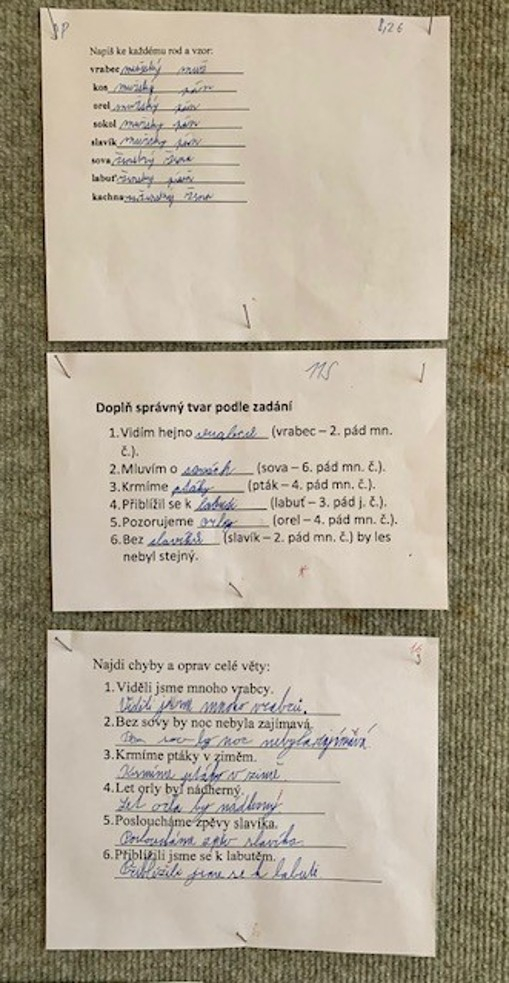 8,26
Napiš ke každému rod a vzor:
vrabec mužský muž
kos mužský pán
orel mužský pán
sokol mužsky pán
slavík mužsky pán
sova ženský žena
labuť ženský píseň
kachna žena
115
Doplň správný tvar podle zadání
1. Vidím hejno (vrabec – 2. pád mn.
č.).
2. Mluvím o sovách (sova – 6. pád mn. č.).
3. Krmíme ptáky (pták – 4. pád mn. č.).
4. Přiblížil se k labuti (labuť – 3. pád j. č.).
5. Pozorujeme orly (orel – 4. pád mn. č.).
6. Bez slavíků (slavík – 2. pád mn. č.) by les
nebyl stejný.
Najdi chyby a oprav celé věty:
1. Viděli jsme mnoho vrabcy.
Viděli jsme mnoho vrabců.
2. Bez sovy by noc nebyla zajímavá.
sov by noc nebyla zajímavá
3. Krmíme ptáky v ziměm.
Krmíme ptáky v zimě.
4. Let orly byl nádherný.
Let orla by nádherný
5. Posloucháme zpěvy slavíka.
Posloucháme zpěv slavíka.
6. Přiblížili jsme se k labutěm.
Přiblížili jsme se k labuti.